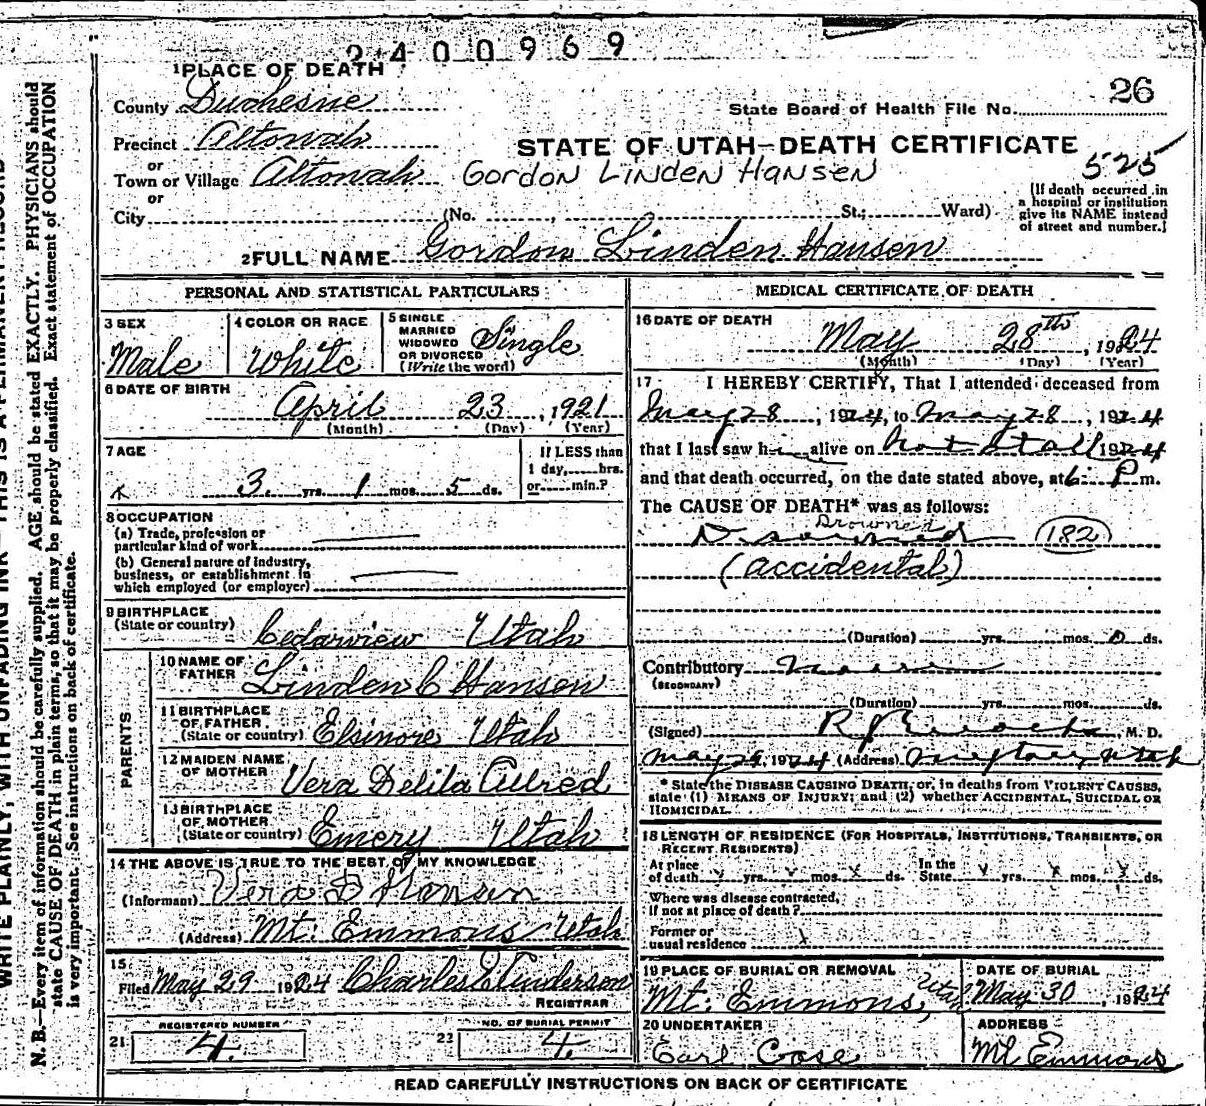 2400969
1 PLACE OF DEATH
County Duchesne
State Board of Health File No. 26
Precinct Altonah
STATE OF UTAH—DEATH CERTIFICATE
or
Town or Village Altonah Gordon Linden Hansen 525
or
City (No. , St.; Ward)
(If death occurred in
a hospital or institution
give its NAME instead
of street and number.)
2 FULL NAME Gordon Linden Hansen
PERSONAL AND STATISTICAL PARTICULARS
3 SEX
Male
4 COLOR OR RACE
White
5 SINGLE
MARRIED
WIDOWED
OR DIVORCED
(Write the word)
Single
6 DATE OF BIRTH
April 23, 1921
(Month) (Day) (Year)
7 AGE
3 yrs. 1 mos. 5 ds.
If LESS than
1 day, hrs.
or min.?
8 OCCUPATION
(a) Trade, profession or
particular kind of work
(b) General nature of industry,
business, or establishment in
which employed (or employer)
9 BIRTHPLACE
(State or country) Cedarview Utah
PARENTS
10 NAME OF
FATHER Linden C Hansen
11 BIRTHPLACE
OF FATHER
(State or country) Elsinore Utah
12 MAIDEN NAME
OF MOTHER Vera Delila Allred
13 BIRTHPLACE
OF MOTHER
(State or country) Emery Utah
14 THE ABOVE IS TRUE TO THE BEST OF MY KNOWLEDGE
(Informant) Vera D Hansen
(Address) Mt. Emmons Utah
15
Filed May 29 1924 Charles E Anderson
REGISTRAR
REGISTERED NUMBER
21 4.
NO. OF BURIAL PERMIT
22 4.
MEDICAL CERTIFICATE OF DEATH
16 DATE OF DEATH
May 28th, 1924
(Month) (Day) (Year)
17 I HEREBY CERTIFY, That I attended deceased from
May 28, 1924, to May 28, 1924
that I last saw him alive on not at all 1924
and that death occurred, on the date stated above, at 6 P m.
The CAUSE OF DEATH* was as follows:
Drowned
Drowned (182)
(accidental)
(Duration) yrs. mos. 0 ds.
Contributory None
(SECONDARY)
(Duration) yrs. mos. ds.
(Signed) M. D.
May 29, 1924 (Address) Utah
* State the DISEASE CAUSING DEATH, or, in deaths from VIOLENT CAUSES,
state (1) MEANS OF INJURY; and (2) whether ACCIDENTAL, SUICIDAL OR
HOMICIDAL.
18 LENGTH OF RESIDENCE (FOR HOSPITALS, INSTITUTIONS, TRANSIENTS, OR
RECENT RESIDENTS)
At place In the
of death yrs. mos. ds. State yrs. mos. ds.
Where was disease contracted,
if not at place of death?
Former or
usual residence
19 PLACE OF BURIAL OR REMOVAL
Mt. Emmons, Utah
DATE OF BURIAL
May 30, 1924
20 UNDERTAKER
Earl Case
ADDRESS
Mt Emmons
READ CAREFULLY INSTRUCTIONS ON BACK OF CERTIFICATE
WRITE PLAINLY, WITH UNFADING INK—THIS IS A PERMANENT RECORD
N. B.—Every item of information should be carefully supplied. AGE should be stated EXACTLY. PHYSICIANS should
state CAUSE OF DEATH in plain terms, so that it may be properly classified. Exact statement of OCCUPATION
is very important. See instructions on back of certificate.